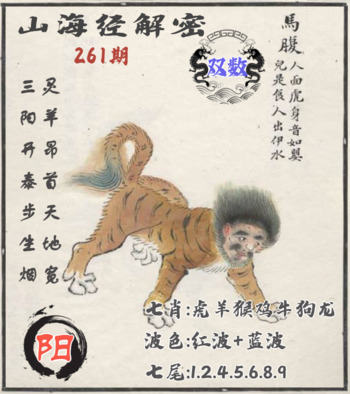 山海经解密
261期
双数
馬腹
人面虎身音如嬰
兒是食人出伊水
灵羊昂首天地宽
三阳开泰步生烟
阳
七肖:虎羊猴鸡牛狗龙
波色:红波+蓝波
七尾:1.2.4.5.6.8.9